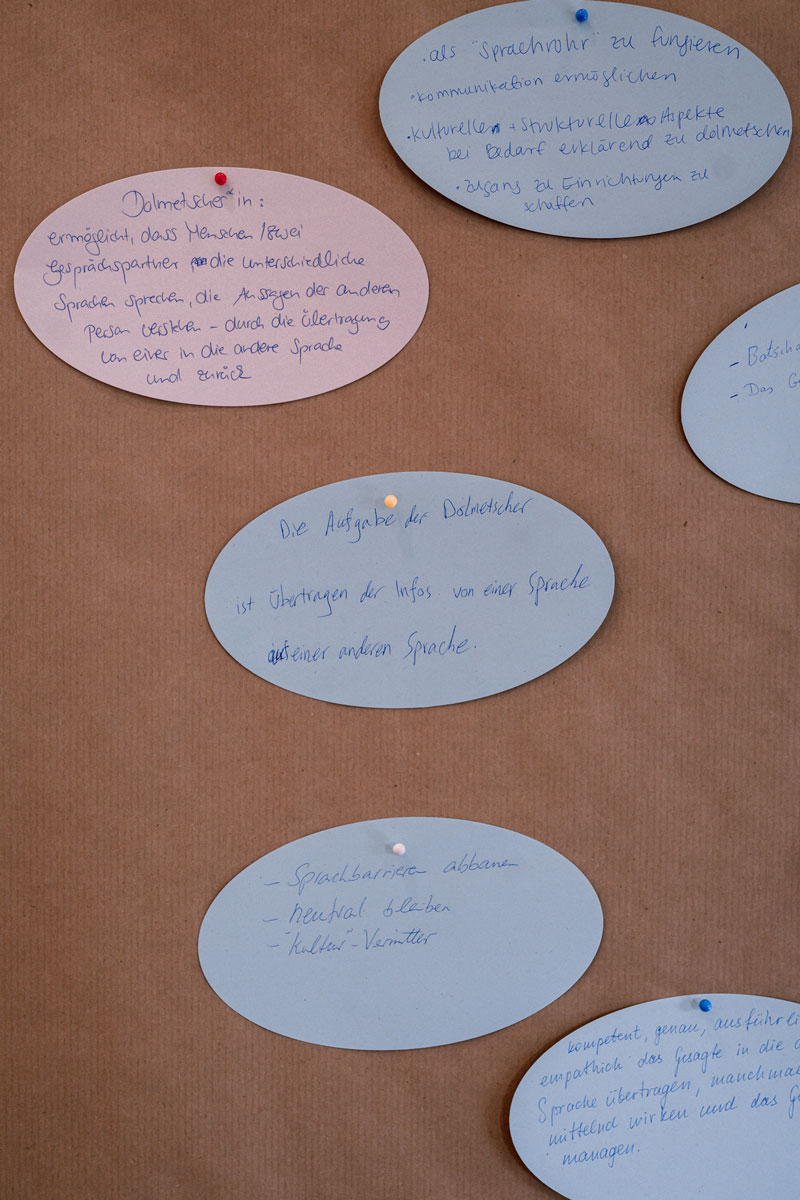 • als "Sprachrohr" zu fungieren
• Kommunikation ermöglichen
• kulturelle + strukturelle Aspekte
bei Bedarf erklärend zu dolmetschen
• Zugang zu Einrichtungen zu
schaffen
Dolmetscher*in:
ermöglicht, dass Menschen / zwei
Gesprächspartner die unterschiedliche
Sprachen sprechen, die Aussagen der anderen
Person verstehen – durch die Übertragung
von einer in die andere Sprache
und zurück
– Botscha
– Das G
Die Aufgabe der Dolmetscher
ist Übertragen der Infos von einer Sprache
auf einer anderen Sprache.
– Sprachbarrieren abbauen
– neutral bleiben
– "Kultur"-Vermittler
kompetent, genau, ausführli
empathich das Gesagte in die
Sprache übertragen, manchmal
mittelnd wirken und das G
managen.